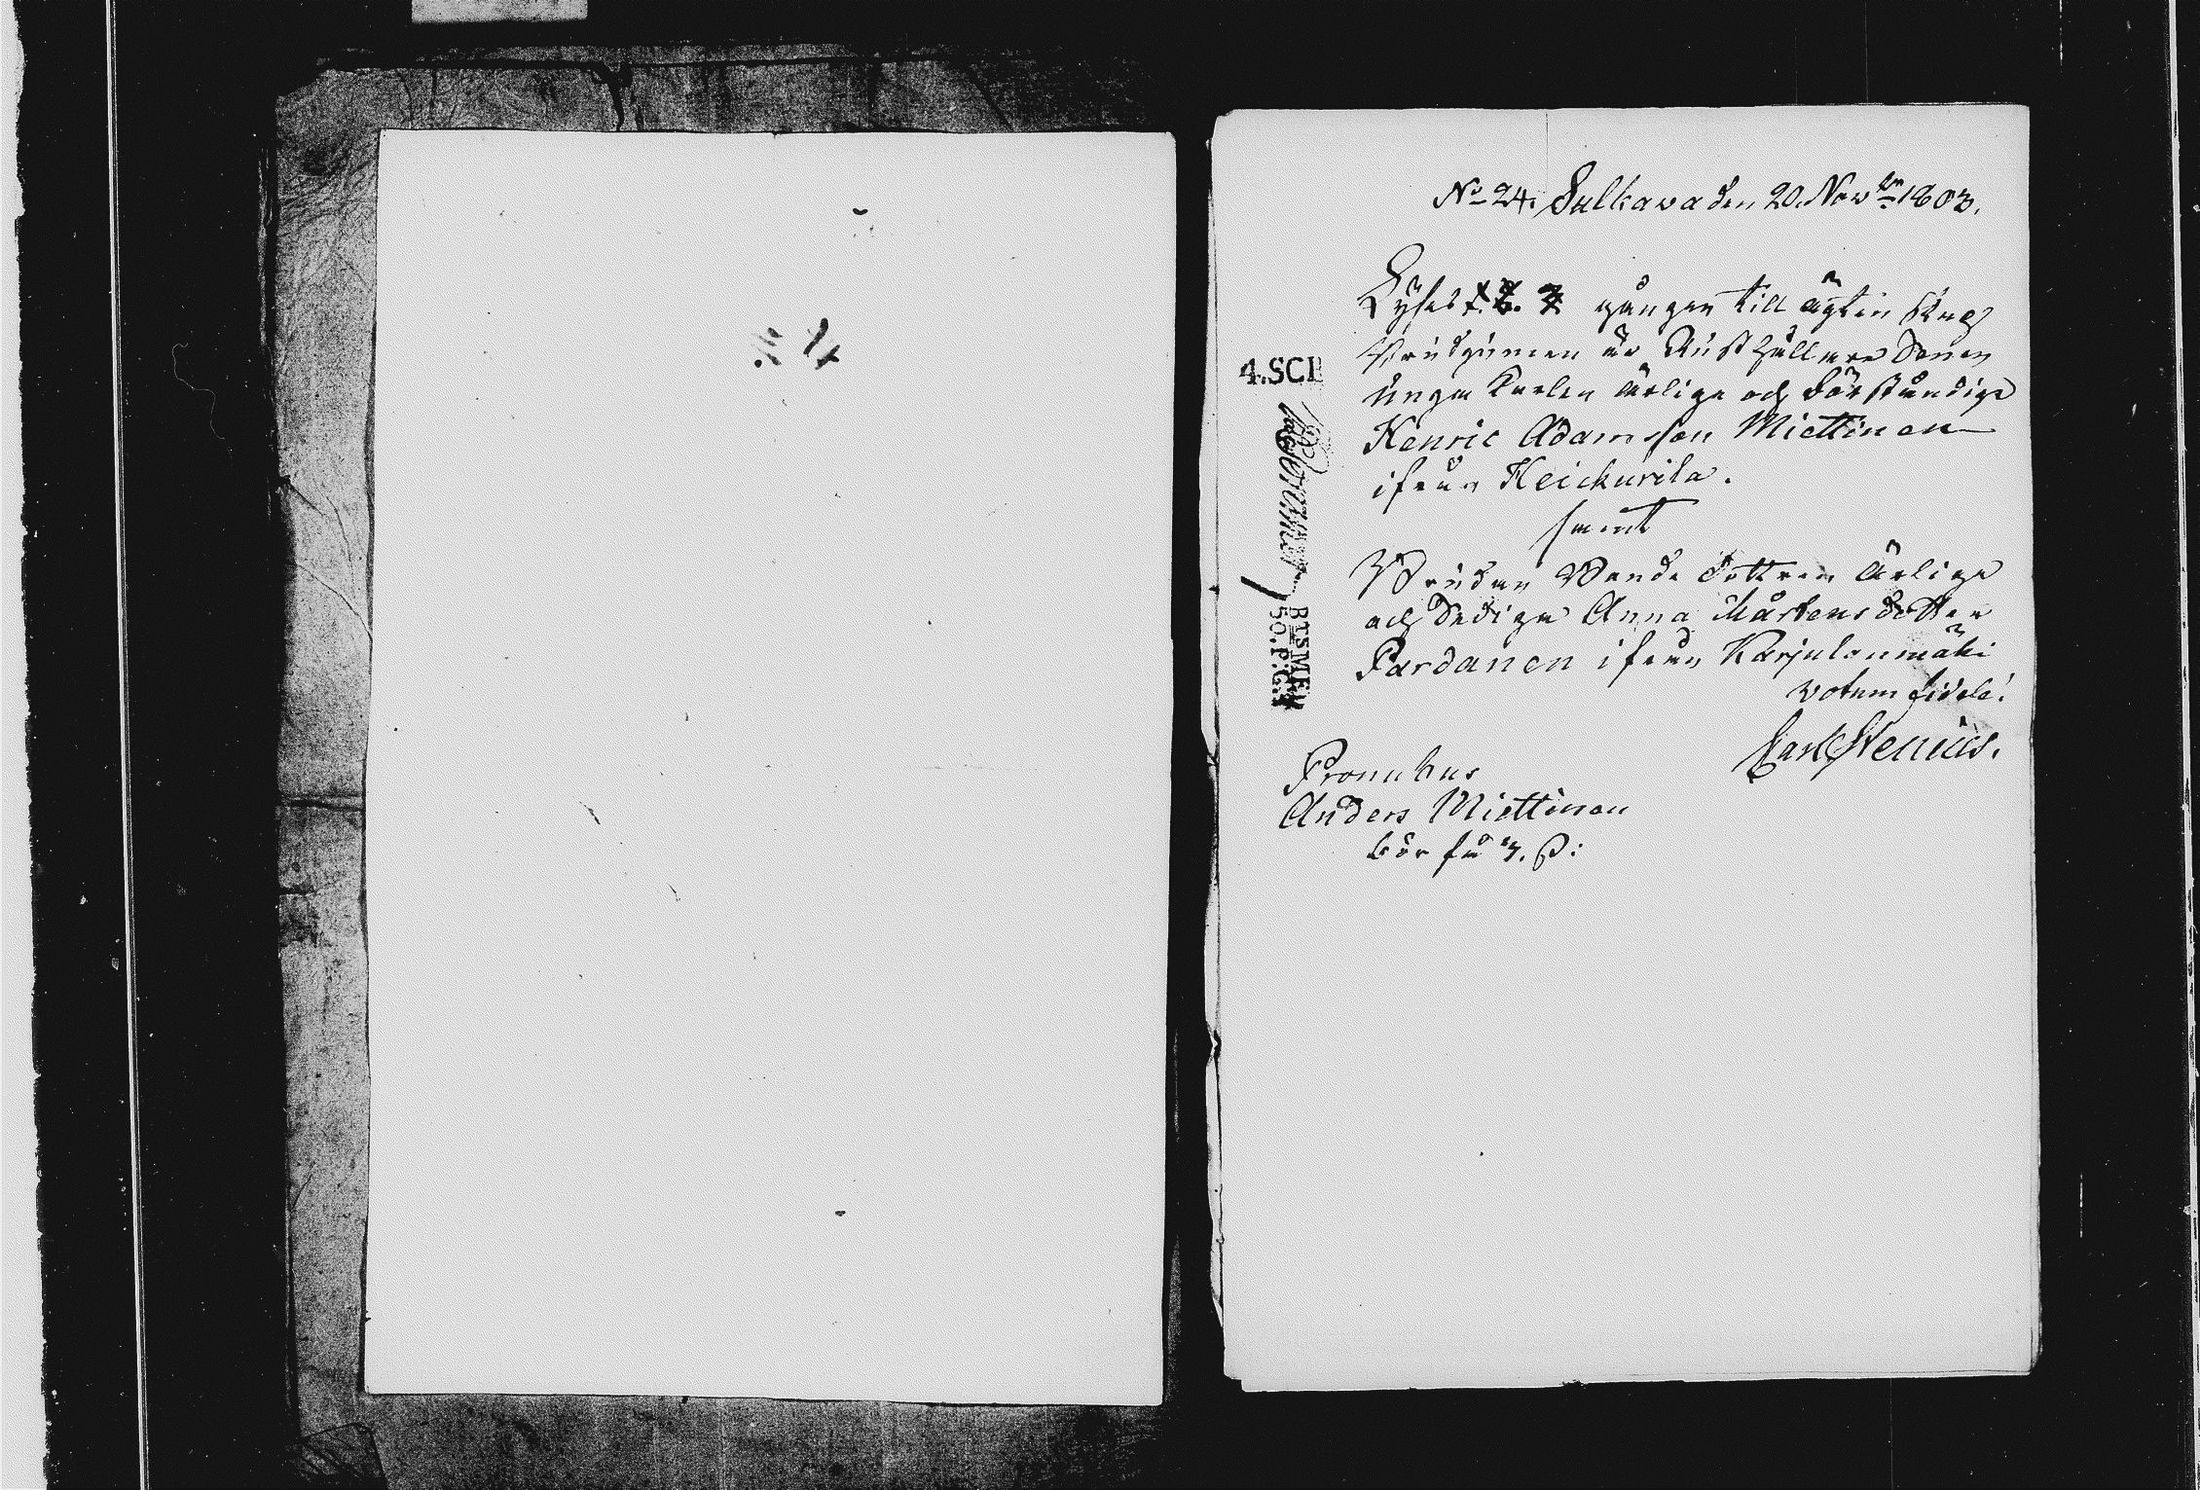 No 24. Sulkava den 20. Novbr 1803.
Lyses 1. 2. 3 gången till ägtenskap
Brudgumen är Rusthållare Sonen
unga Karlen ärlige och Förståndige
Henric Adamsson Miettinen
ifrån Heickurila.
samt
Bruden Bonde dottren Ärliga
och Sediga Anna Mårtensdotter
Pardanen ifrån Karjulanmäki
votum fidele!
Carl Stenius.
Pronubus
Anders Miettinen
bör få 3. ß:
4.SCI